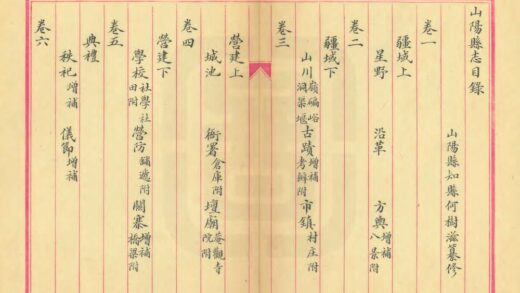 山陽縣志目錄
山陽縣知縣何樹滋纂修
卷一
疆域上
星野 沿革 方輿增補八景附
卷二
疆域下
山川嶺碥峪洞渠堰 古蹟增補考辨附 市鎮村庄附
卷三
營建上
城池 衙署倉庫附 壇廟庵觀寺院附
卷四
營建下
學校社學社田附 營防舖遞附 關寨增補橋梁附
卷五
典禮
秩祀增補 儀節增補
卷六